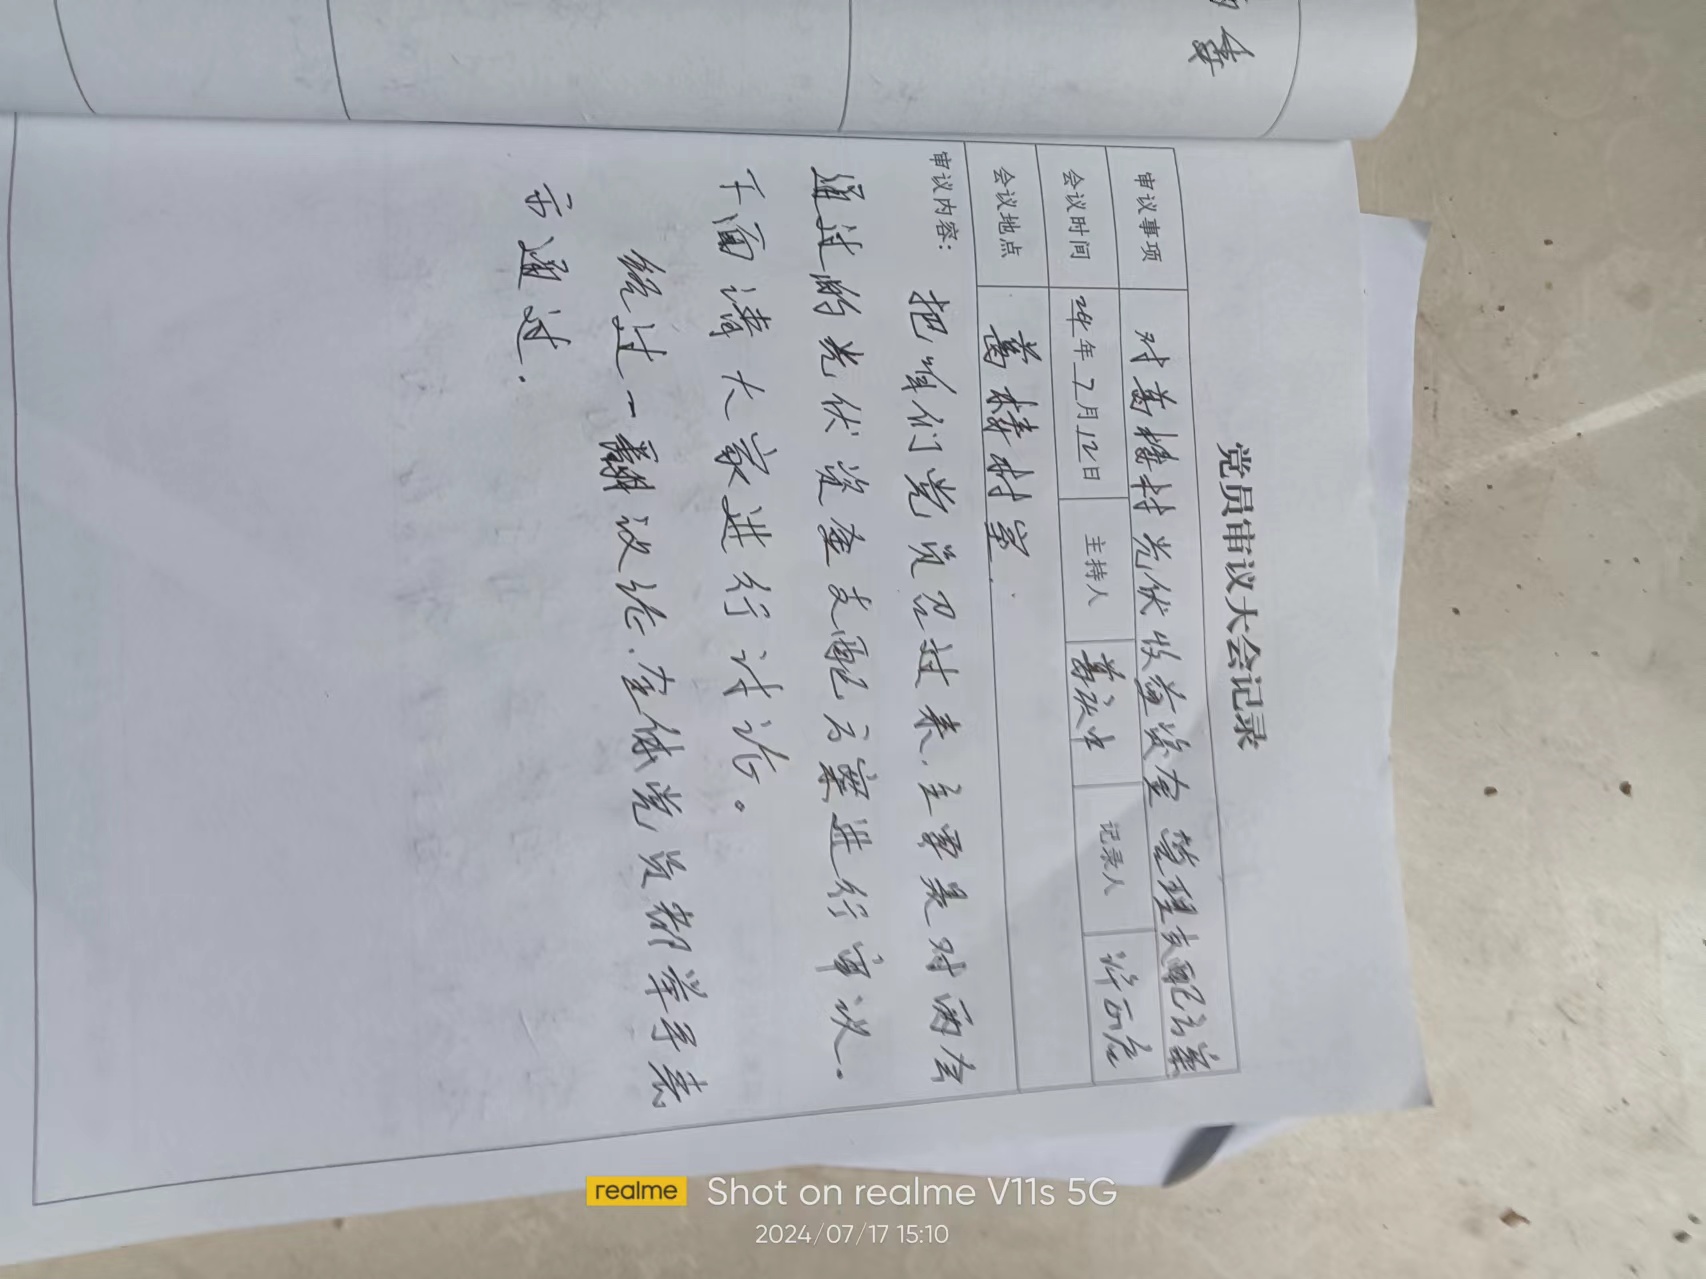 党员审议大会记录
审议事项 对葛楼村光伏收益资金管理支配方案
会议时间 24年7月12日 主持人 记录人
会议地点 葛楼村室.
审议内容:
把咱们党员召过来.主要是对两会
通过的光伏资金支配方案进行审议.
下面请大家进行讨论。
经过一翻议论.全体党员都举手表
示通过.
realme Shot on realme V11s 5G
2024/07/17 15:10